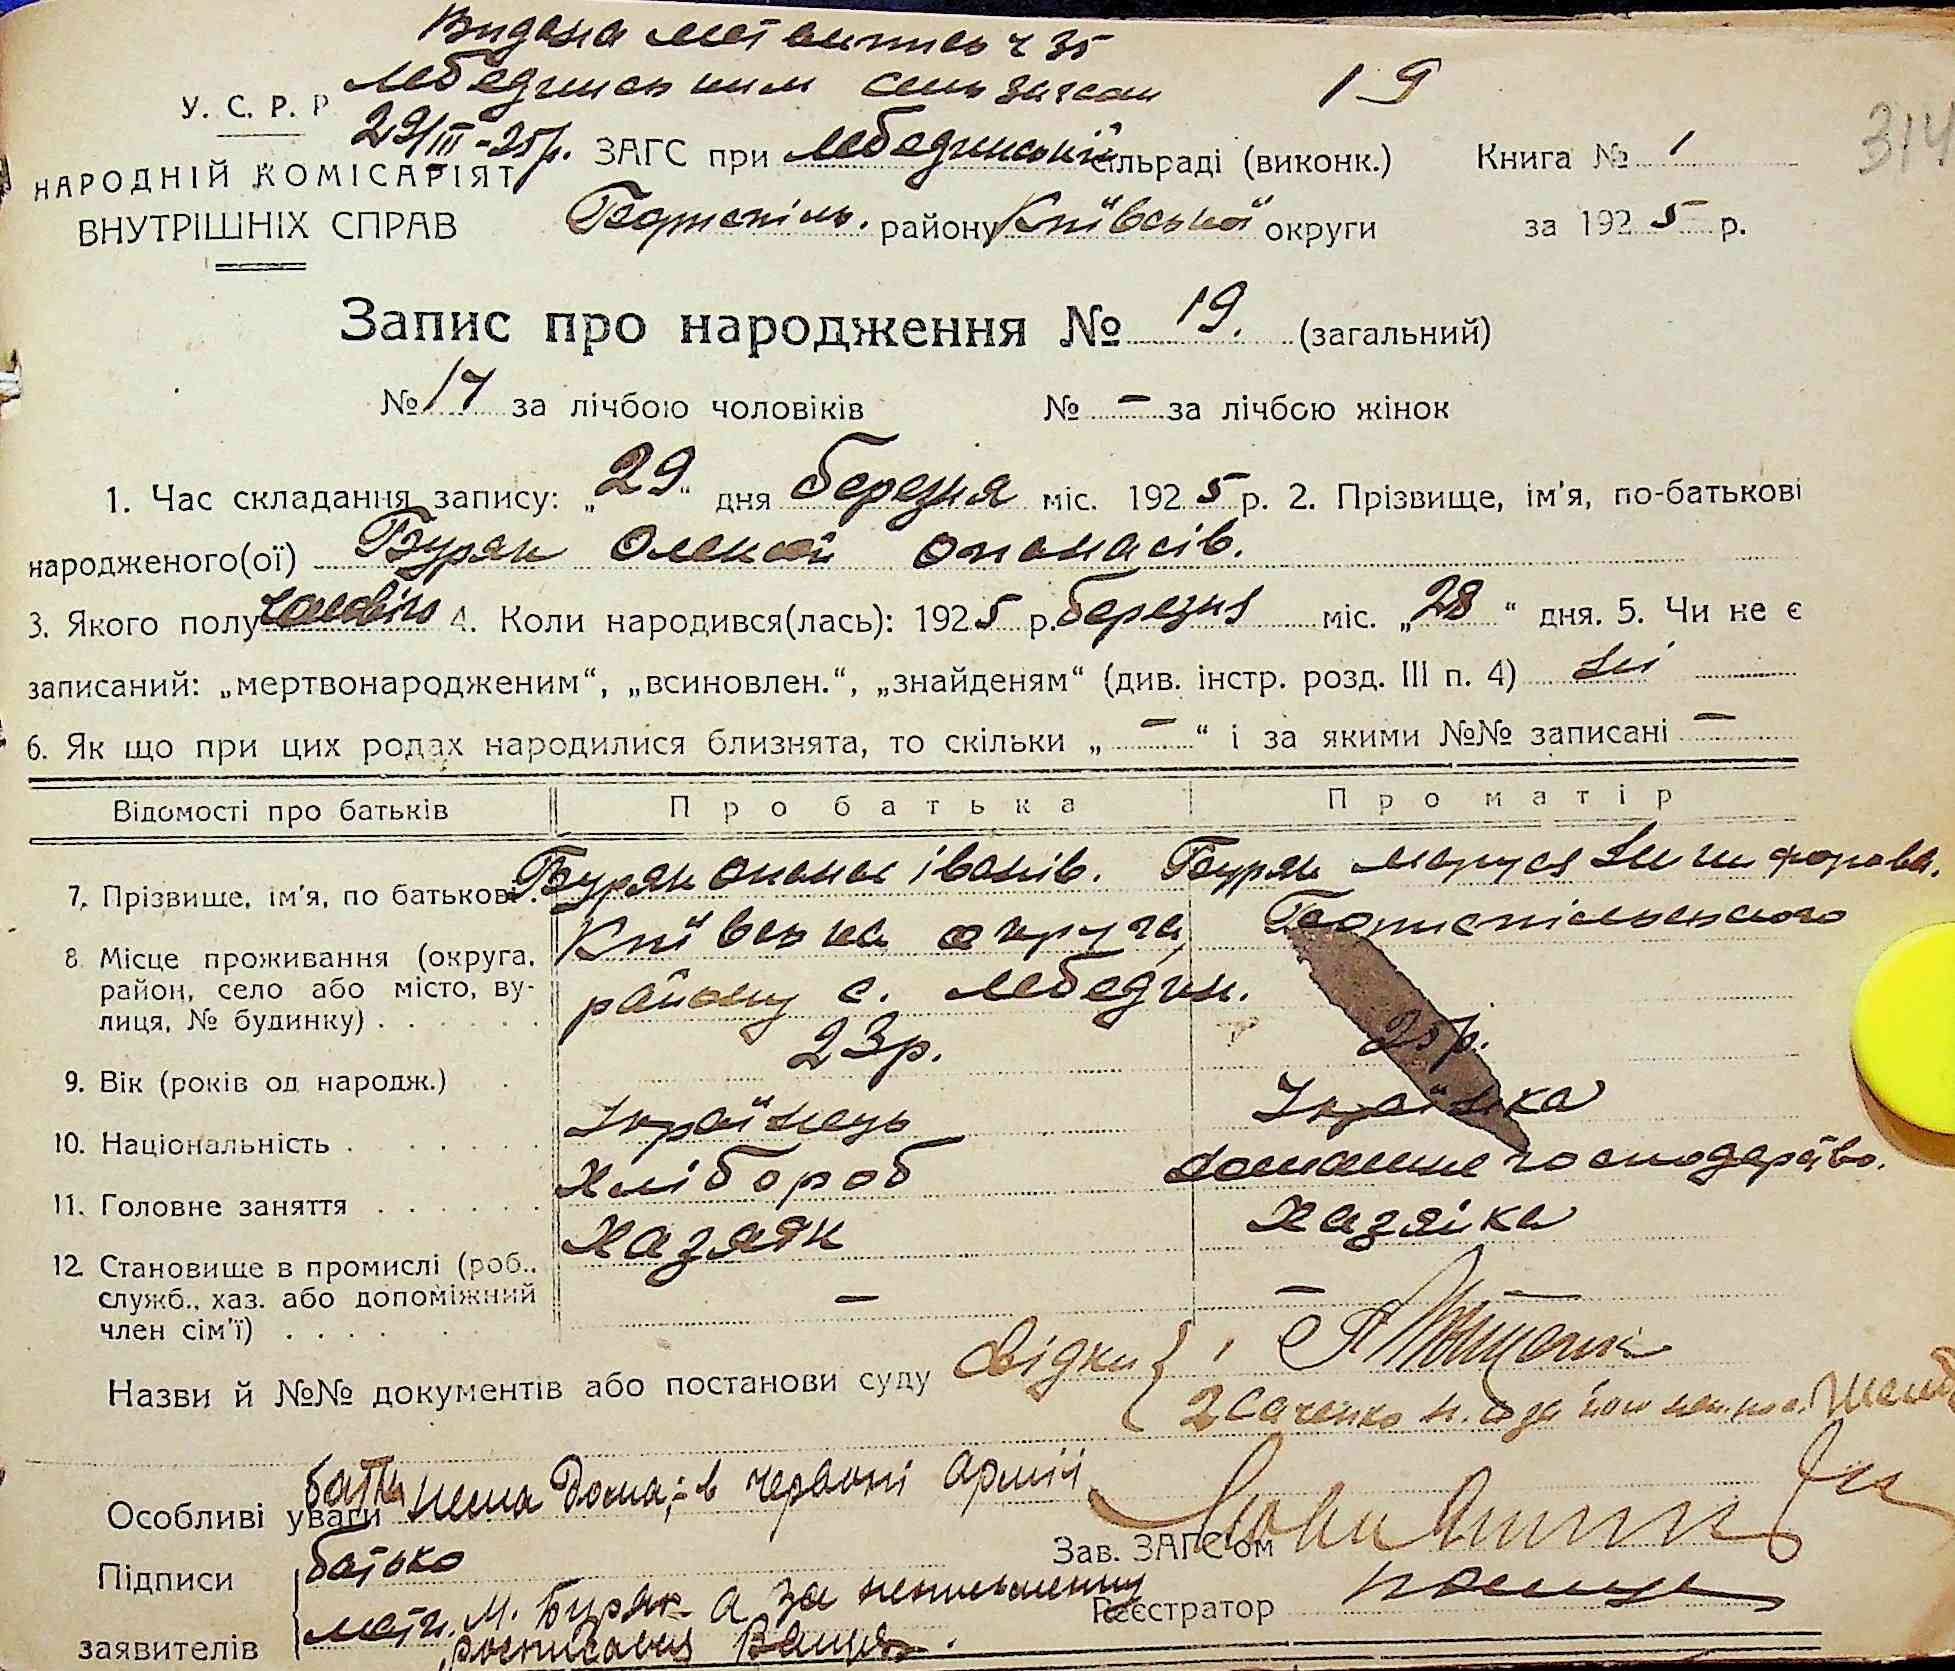 Видана
Лебединським
19
314
У. С. Р. Р
29/III-25р. ЗАГС при Лебединській сільраді (виконк.) Книга № 1
НАРОДНІЙ КОМІСАРІЯТ
ВНУТРІШНІХ СПРАВ
Бориспіль. району Київської округи за 1925 р.
Запис про народження № 19. (загальний)
№ 17 за лічбою чоловіків № — за лічбою жінок
1. Час складання запису: „29“ дня березня міс. 1925 р. 2. Прізвище, ім'я, по-батькові
народженого(ої) Буряк Олексій Опанасів.
3. Якого полу 4. Коли народився(лась): 1925 р. березня міс. „28“ дня. 5. Чи не є
записаний: „мертвонародженим“, „всиновлен.“, „знайденям“ (див. інстр. розд. III п. 4) Ні
6. Як що при цих родах народилися близнята, то скільки „ — “ і за якими №№ записані —
Відомості про батьків Про батька Про матір
7. Прізвище, ім'я, по батькові. Буряк Опанас Іванів. Буряк Маруся Никифорова.
8. Місце проживання (округа, Київська округа, Бориспільського
район, село або місто, ву- району с. Лебедин.
лиця, № будинку)
9. Вік (років од народж.) 23р. 25р.
10. Національність Українець Українка
11. Головне заняття Хлібороб домашнє господарство.
12. Становище в промислі (роб., Хазяїн Хазяіка
служб., хаз. або допоміжний
член сім'ї) — —
Назви й №№ документів або постанови суду Свідки { 1
2 Саченко
Особливі уваги батька нема дома, - в червоні армії
Зав. ЗАГС'ом
Підписи батько
заявителів мати. М. Буряк - а за неписьменну
Реєстратор
росписався